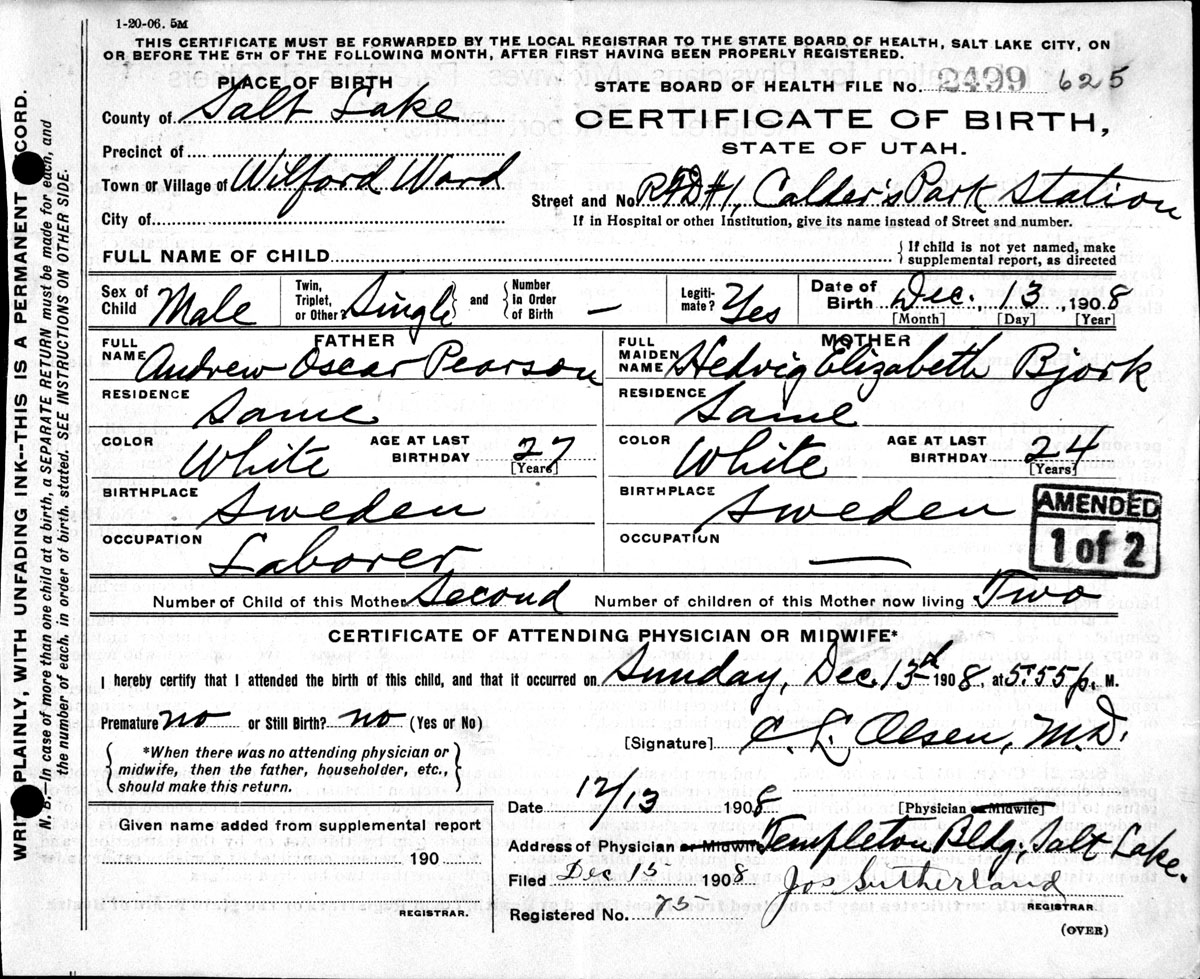 1-20-06. 5M
THIS CERTIFICATE MUST BE FORWARDED BY THE LOCAL REGISTRAR TO THE STATE BOARD OF HEALTH, SALT LAKE CITY, ON
OR BEFORE THE 5TH OF THE FOLLOWING MONTH, AFTER FIRST HAVING BEEN PROPERLY REGISTERED.
PLACE OF BIRTH
STATE BOARD OF HEALTH FILE NO. 2499 625
County of Salt Lake
CERTIFICATE OF BIRTH,
STATE OF UTAH.
Precinct of
Town or Village of Wilford Ward
Street and No. RFD #1, Calder's Park Station
City of
If in Hospital or other Institution, give its name instead of Street and number.
FULL NAME OF CHILD
If child is not yet named, make
supplemental report, as directed
Sex of Child Male
Twin, Triplet, or Other? Single and Number in Order of Birth —
Legitimate? Yes
Date of Birth Dec. 13, 1908
[Month] [Day] [Year]
FATHER
MOTHER
FULL NAME Andrew Oscar Pearson
FULL MAIDEN NAME Hedvig Elizabeth Bjork
RESIDENCE Same
RESIDENCE Same
COLOR White AGE AT LAST BIRTHDAY 27 [Years]
COLOR White AGE AT LAST BIRTHDAY 24 [Years]
BIRTHPLACE Sweden
BIRTHPLACE Sweden
OCCUPATION Laborer
OCCUPATION —
AMENDED
1 of 2
Number of Child of this Mother Second Number of children of this Mother now living Two
CERTIFICATE OF ATTENDING PHYSICIAN OR MIDWIFE*
I hereby certify that I attended the birth of this child, and that it occurred on Sunday, Dec. 13th 1908, at 5:55 p. M.
Premature? no or Still Birth? no (Yes or No)
[Signature] C. L. Olsen, M.D.
*When there was no attending physician or
midwife, then the father, householder, etc.,
should make this return.
Date 12/13 1908 [Physician or Midwife]
Given name added from supplemental report
Address of Physician or Midwife Templeton Bldg, Salt Lake.
190
Filed Dec 15 1908 Jos Sutherland
REGISTRAR.
Registered No. 75 REGISTRAR.
(OVER)
WRITE PLAINLY, WITH UNFADING INK--THIS IS A PERMANENT RECORD.
N. B.—In case of more than one child at a birth, a SEPARATE RETURN must be made for each, and
the number of each, in order of birth, stated. SEE INSTRUCTIONS ON OTHER SIDE.